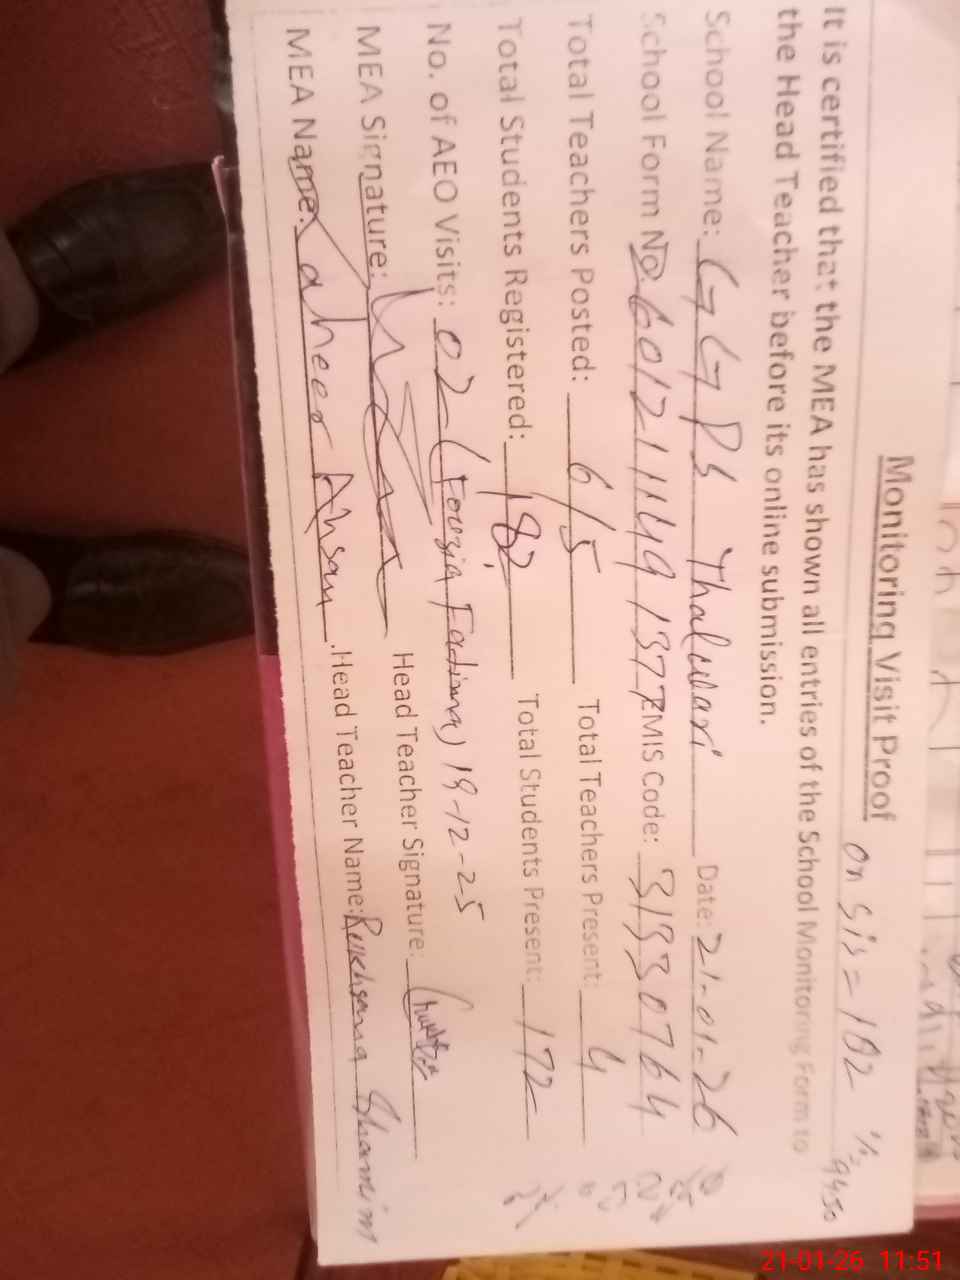 Monitoring Visit Proof
on sis = 182 %. 94.50
It is certified that the MEA has shown all entries of the School Monitoring Form to
the Head Teacher before its online submission.
School Name: GGPS Thalwari Date: 21-01-26
School Form No. 601211149 1377 EMIS Code: 31330764
Total Teachers Posted: 6/5 Total Teachers Present: 4
Total Students Registered: 182 Total Students Present: 172
No. of AEO Visits: 02 (Fouzia Fatima) 19-12-25
MEA Signature: Head Teacher Signature:
MEA Name: Zaheer Ahsan Head Teacher Name: Rukhsana Shamim
21-01-26 11:51